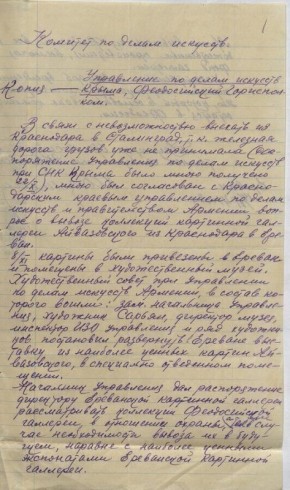 1
Комитет по делам искусств.
Управление по делам искусств
Копия — Крыма, Феодосийский Горисполком.
В связи с невозможностью выехать из
Краснодара в Сталинград, т.к. железная
дорога грузов уже не принимала (распоряжение
Управления по делам искусств
при СНК Крыма было мною получено
мною был согласован с Краснодарским
краевым управлением по делам
искусств и правительством Армении вопрос
о вывозе коллекции картинной галлереи
Айвазовского из Краснодара в Ереван.
картины были привезены в Ереван
и помещены в художественный музей.
Художественный совет при Управлении
по делам искусств Армении, в состав которого
вошли: зам. начальника Управления,
художник Сарьян, директор музея,
инспектор ИЗО Управления и ряд художников
постановил развернуть в Ереване выставку
из наиболее ценных картин Айвазовского,
в специально отведенном помещении.
Начальник Управления дал распоряжение
директору Ереванской картинной галлереи
рассматривать коллекции Феодосийской
галлереи, в отношении охраны и в случае
необходимости вывоза их в будущем,
наравне с наиболее ценными
экспонатами Ереванской картинной
галлереи.